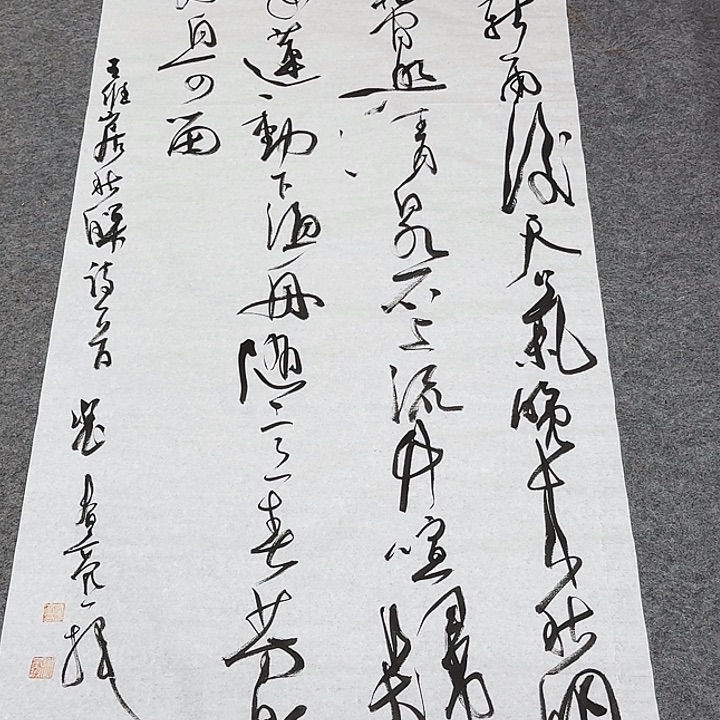 新雨後天氣晚來秋明
間照清泉石上流竹喧歸
蓮動下漁舟隨意春芳歇
自可留
王維山居秋暝詩一首